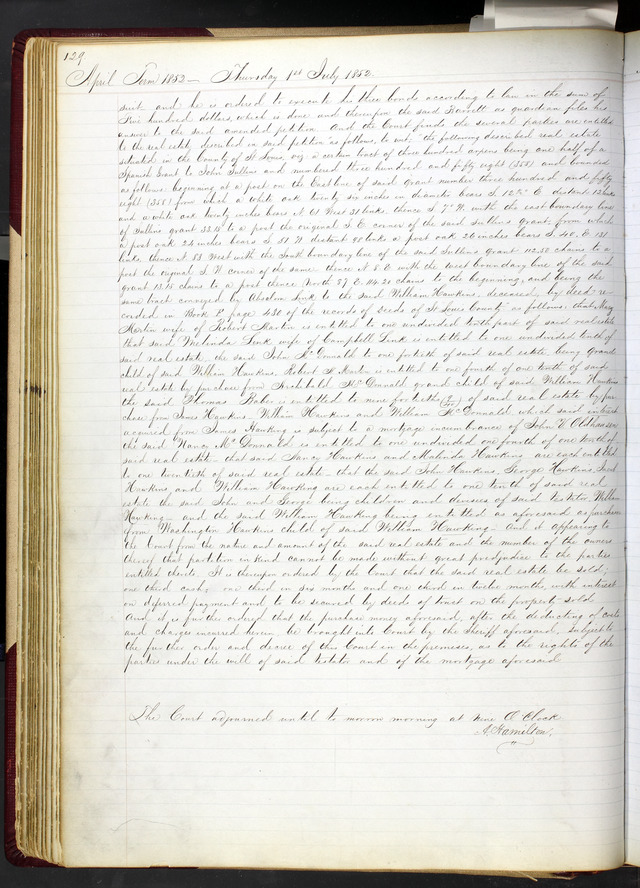 129
April Term 1852 — Thursday 1st July 1852.
suit and he is ordered to execute his three bonds according to law in the sum of
five hundred dollars, which is done and thereupon the said Herrett as guardian files his
answer to the said amended petition. And the Court finds the several parties are entitled
to the real estate described in said petition as follows, to wit, the following described real estate
situated in the County of St Louis, viz, a certain tract of three hundred arpens being one half of a
Spanish Grant to John Sullins and numbered three hundred and fifty eight (358) and bounded
as follows: beginning at a post on the East line of said Grant number three hundred and fifty
eight (358) from which a white oak twenty six inches in diameter bears S. 12½ E. distant 12 links
and a white oak twenty inches bears N. 61 West 31 links, thence S. 7° W. with the east boundary line
of Sullins grant 33.15 to a post the original S. E. corner of the said Sullins Grant, from which
a post oak 24 inches bears S. 51 W. distant 90 links a post oak 26 inches bears S. 40. E. 131
links, thence N. 83 West with the South boundary line of the said Sullins grant 112.50 chains to a
post the original S. W. corner of the same, thence N. 8. E. with the west boundary line of the said
grant 13.15 chains to a post thence North 87 E. 114.20 chains to the beginning, and being the
same tract conveyed by Absolem Link to the said William Hawkins, deceased, by deed re-
corded in Book P. page 430 of the records of Deeds of St Louis County as follows, that Mary
Martin wife of Robert Martin is entitled to one undivided tenth part of said real estate
that said Melinda Link wife of Campbell Link is entitled to one undivided tenth of
said real estate, the said John McDonnald to one fortieth of said real estate being Grand
child of said William Hawkins, Robert F. Martin is entitled to one fourth of one tenth of said
real estate by purchase from Archibald McDonnald grand child of said William Hawkins
the said Thomas Baber is entitled to nine fortieths (9/40) of said real estate by pur-
chase from James Hawkins, William Hawkins and William McDonnald which said interest
acquired from James Hawkins is subject to a mortgage incumbrance of John W. Oldhausen
the said Nancy McDonnald is entitled to one undivided one fourth of one tenth of
said real estate — that said Nancy Hawkins and Malinda Hawkins are each entitled
to one twentieth of said real estate — that the said John Hawkins, George Hawkins,
Hawkins and William Hawkins are each entitled to one tenth of said real
estate the said John and George being children and devisees of said testator William
Hawkins — and the said William Hawkins being entitled as aforesaid as purchaser
from Washington Hawkins child of said William Hawkins — And it appearing to
the Court from the nature and amount of the said real estate and the number of the owners
thereof that partition in kind cannot be made without great predjudice to the parties
entitled thereto. It is thereupon ordered by the Court that the said real estate be sold;
one third cash; one third in six months and one third in twelve months, with interest
on deferred payment and to be secured by deeds of trust on the property sold
And it is further ordered that the purchase money aforesaid, after the deducting of costs
and charges incurred herein be brought into Court by the Sheriff aforesaid, Subject to
the further order and decree of this Court in the premises, as to the rights of the
parties under the will of said testator and of the mortgage aforesaid
The Court adjourned until to morrow morning at nine O'Clock
A. Hamilton,